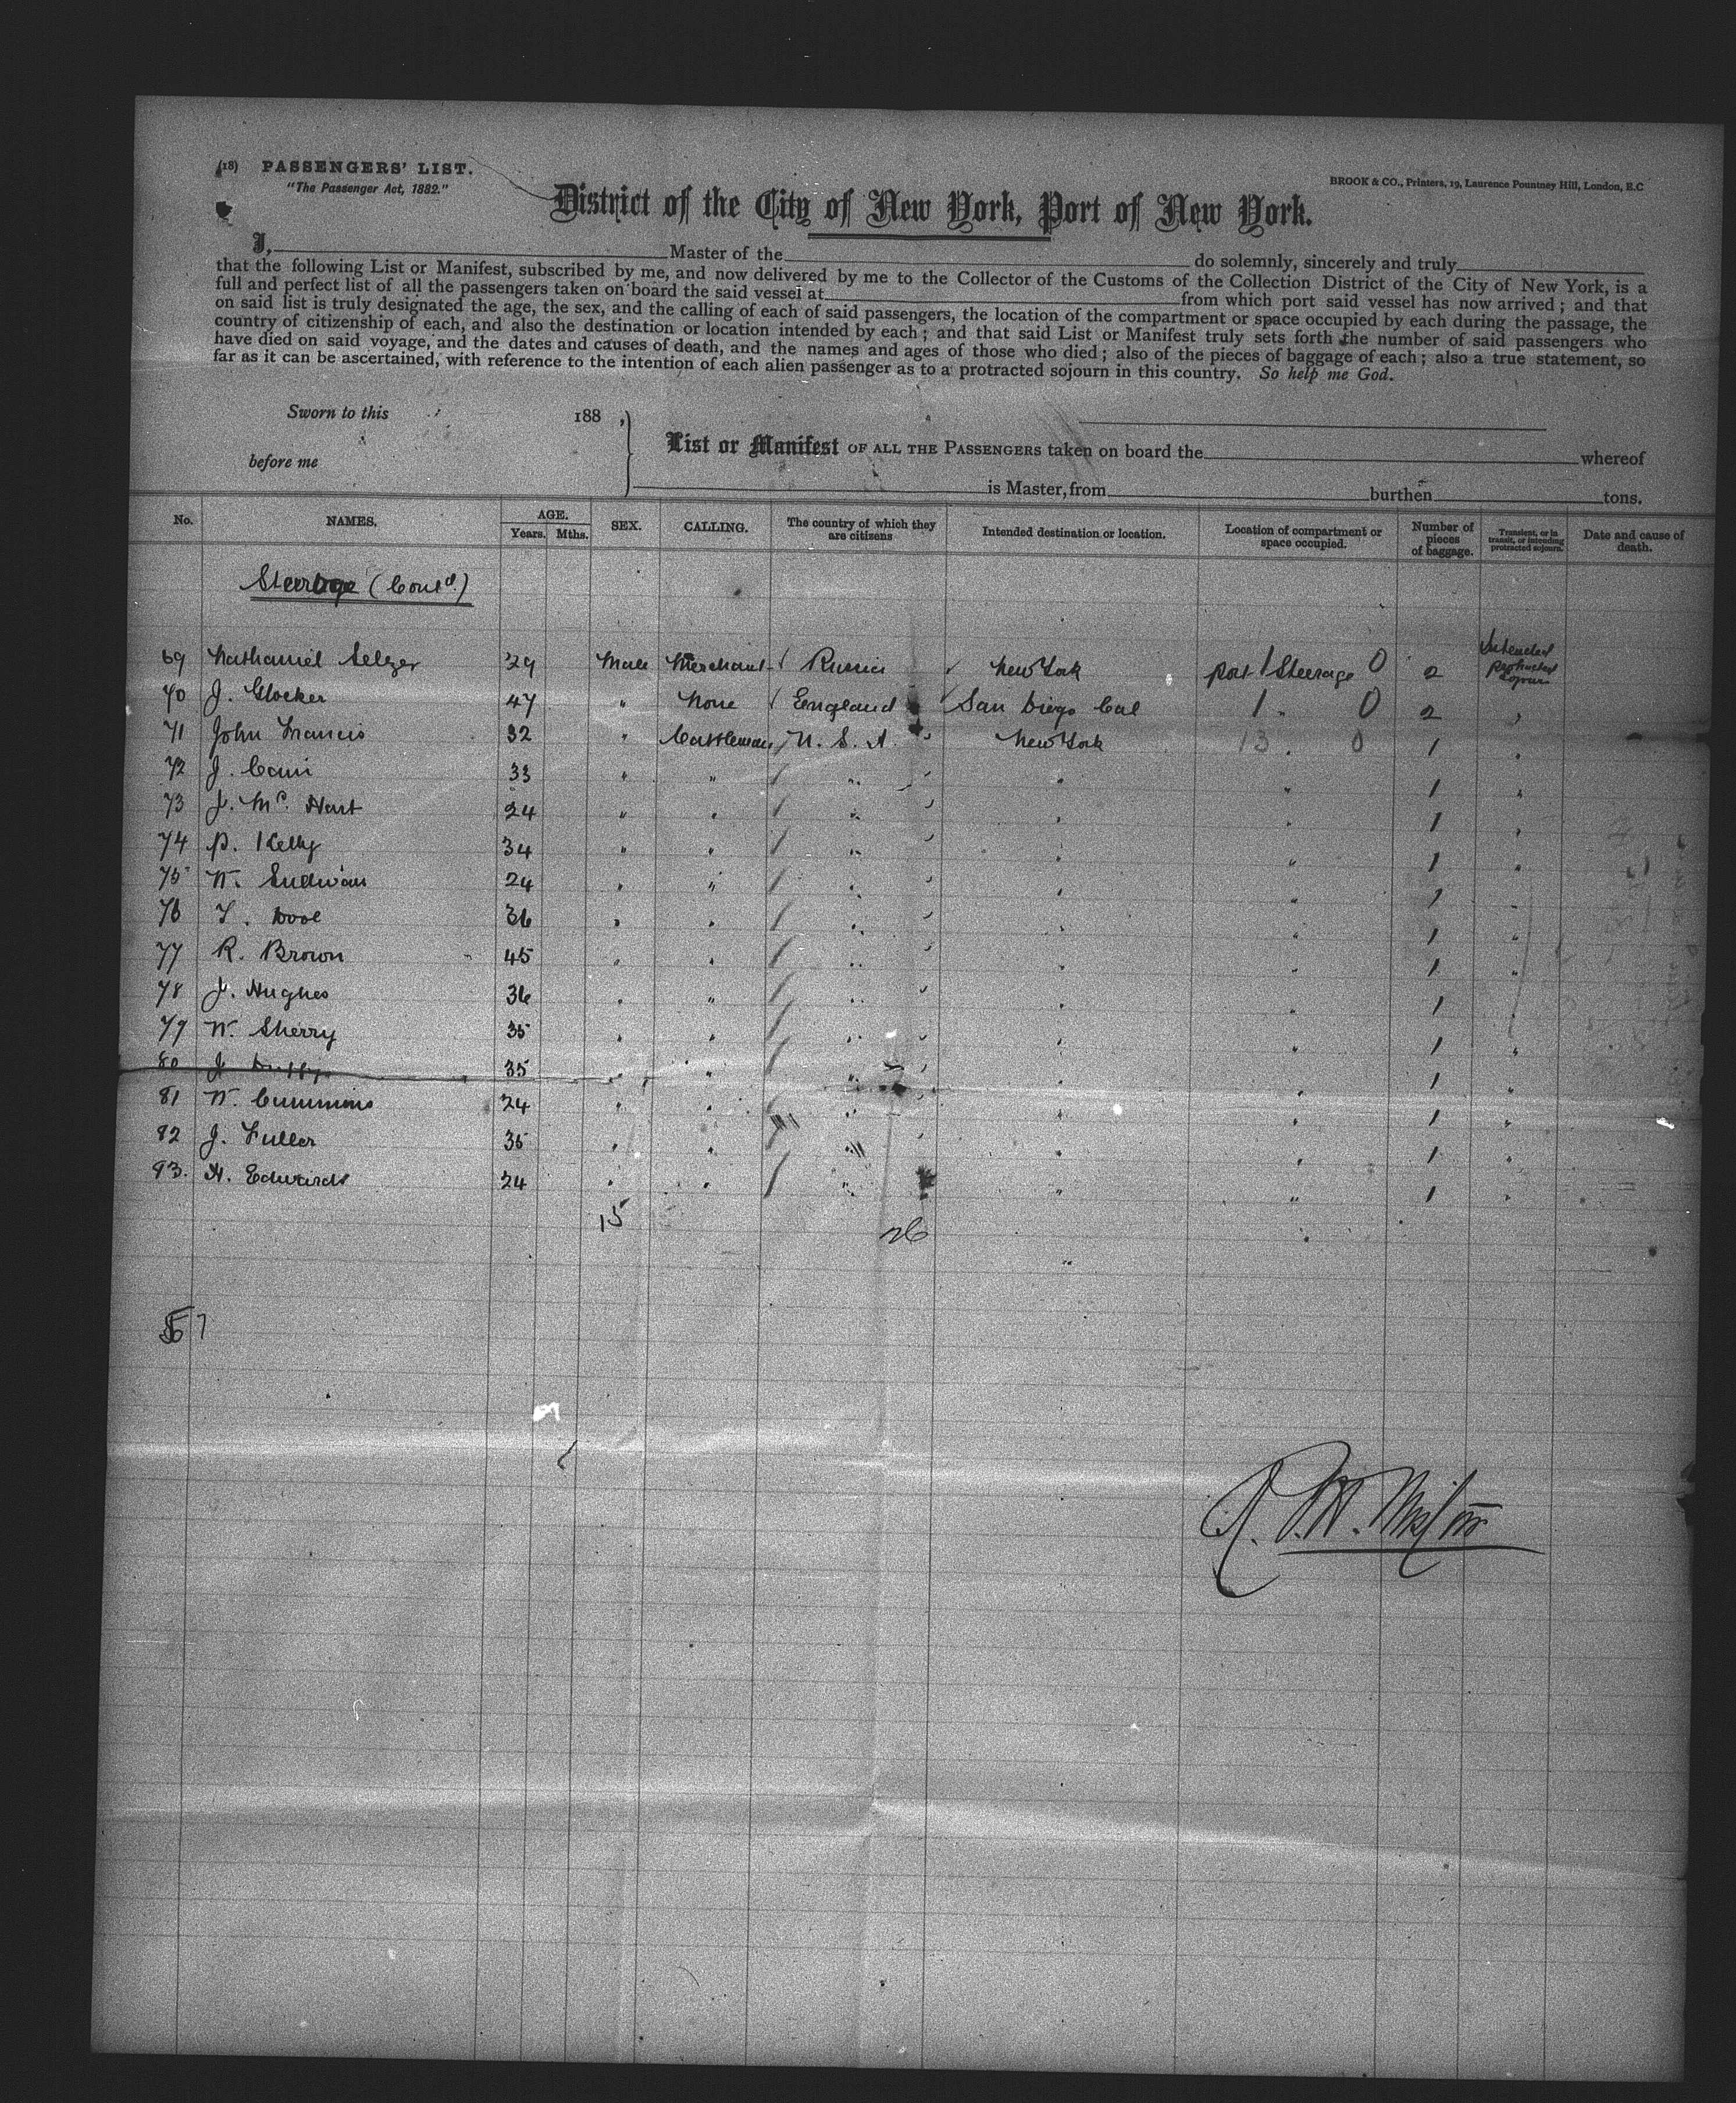 (18) PASSENGERS' LIST.
"The Passenger Act, 1882."
BROOK & CO., Printers, 19, Laurence Pountney Hill, London, E.C
District of the City of New York, Port of New York.
I, Master of the do solemnly, sincerely and truly
that the following List or Manifest, subscribed by me, and now delivered by me to the Collector of the Customs of the Collection District of the City of New York, is a
full and perfect list of all the passengers taken on board the said vessel at from which port said vessel has now arrived; and that
on said list is truly designated the age, the sex, and the calling of each of said passengers, the location of the compartment or space occupied by each during the passage, the
country of citizenship of each, and also the destination or location intended by each; and that said List or Manifest truly sets forth the number of said passengers who
have died on said voyage, and the dates and causes of death, and the names and ages of those who died; also of the pieces of baggage of each; also a true statement, so
far as it can be ascertained, with reference to the intention of each alien passenger as to a protracted sojourn in this country. So help me God.
Sworn to this 188 ,
before me
List or Manifest OF ALL THE PASSENGERS taken on board the whereof
is Master, from burthen tons.
No. NAMES. AGE. Years. Mths. SEX. CALLING. The country of which they are citizens Intended destination or location. Location of compartment or space occupied. Number of pieces of baggage. Transient, or in transit, or intending protracted sojourn. Date and cause of death.
Steerage (Contd.)
69 Nathaniel Selzer 29 Male Merchant Russia New York port 1 Steerage O 2 Intended Protracted Sojourn
70 J. Glocker 47 " None England San Diego Cal 1 " O 2 "
71 John Francis 32 " Cattleman U. S. A. New York 13 " O 1 "
72 J. Cain 33 " " " " " 1 "
73 J. Mc. Hart 24 " " " " " 1 "
74 P. Kelly 34 " " " " " 1 "
75 W. Sullivan 24 " " " " " 1 "
76 T. Wool 36 " " " " " 1 "
77 R. Brown 45 " " " " " 1 "
78 J. Hughes 36 " " " " " 1 "
79 W. Sherry 35 " " " " " 1 "
80 J. 35 " " " " " 1 "
81 W. Cummins 24 " " " " " 1 "
82 J. Fuller 35 " " " " " 1 "
83. H. Edwards 24 " " " " " 1 "
15 26